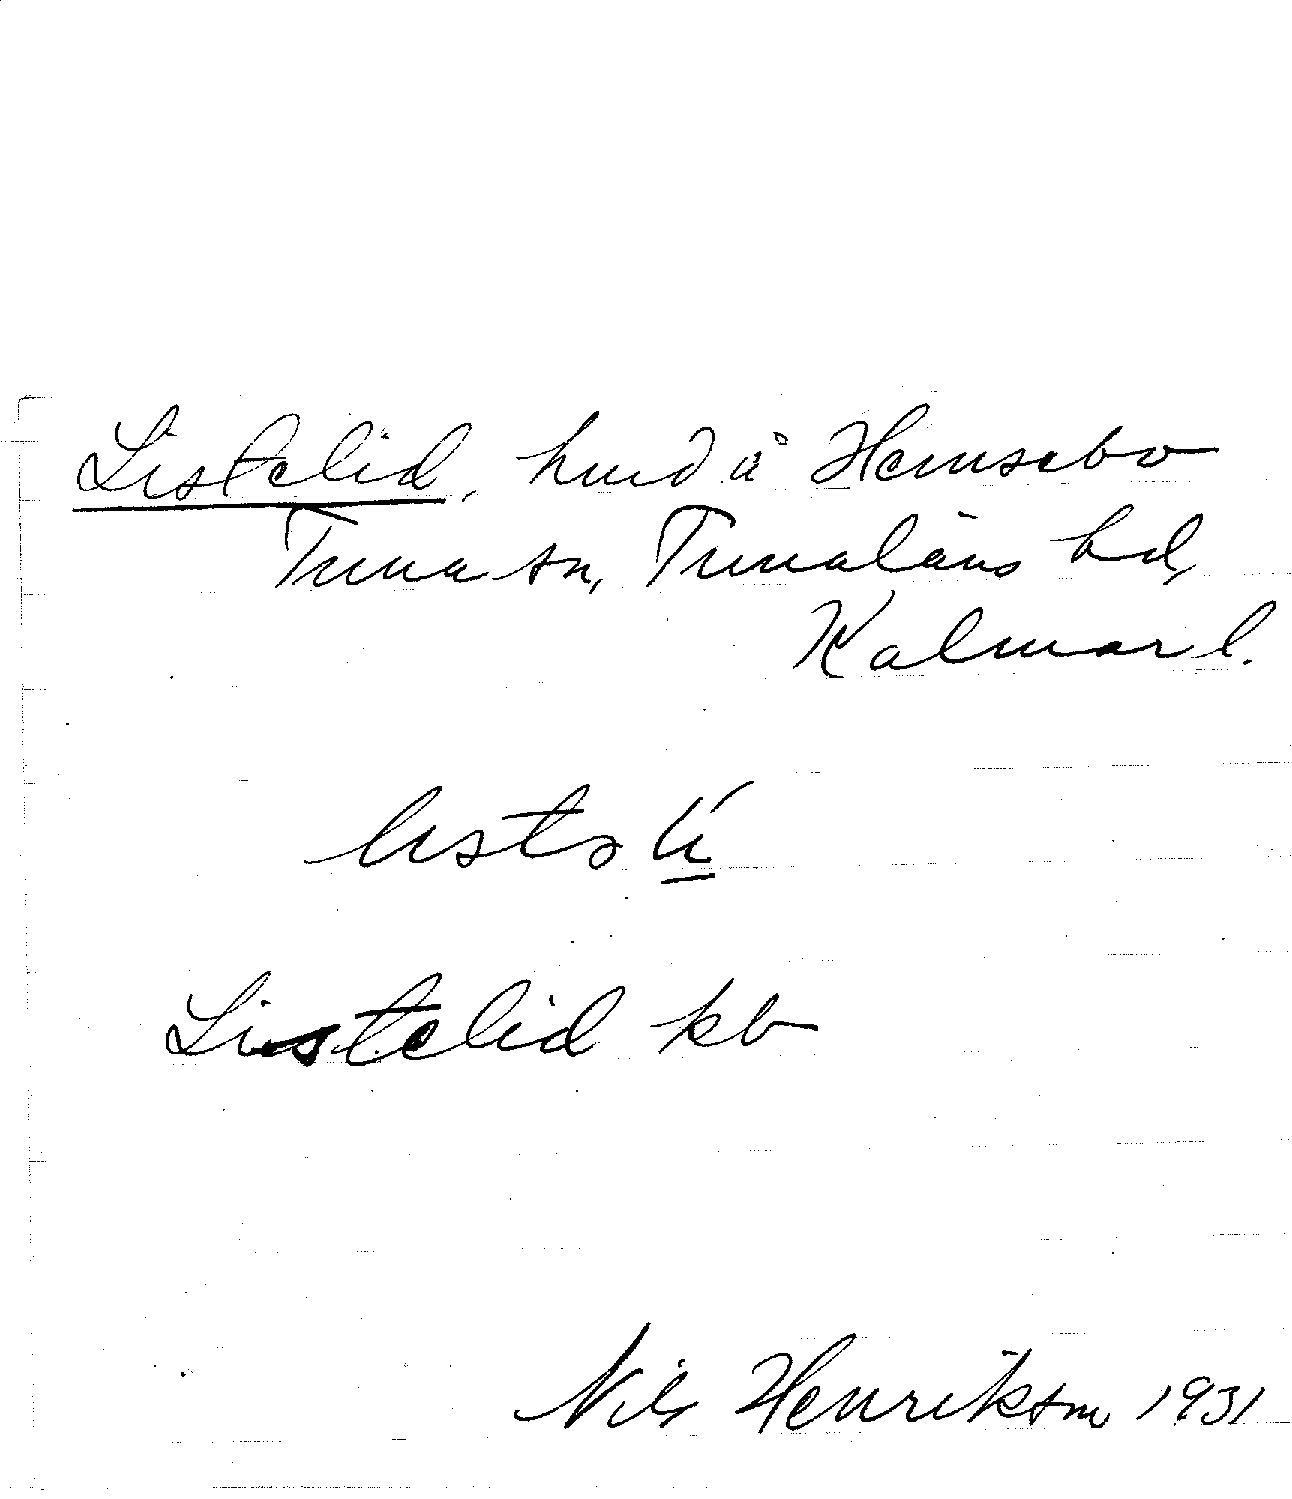 Listelid, hund å Hemsebo
Tuna sn, Tunaläns hd,
Kalmar l.
Listelid kb
Nils Henrikson 1931